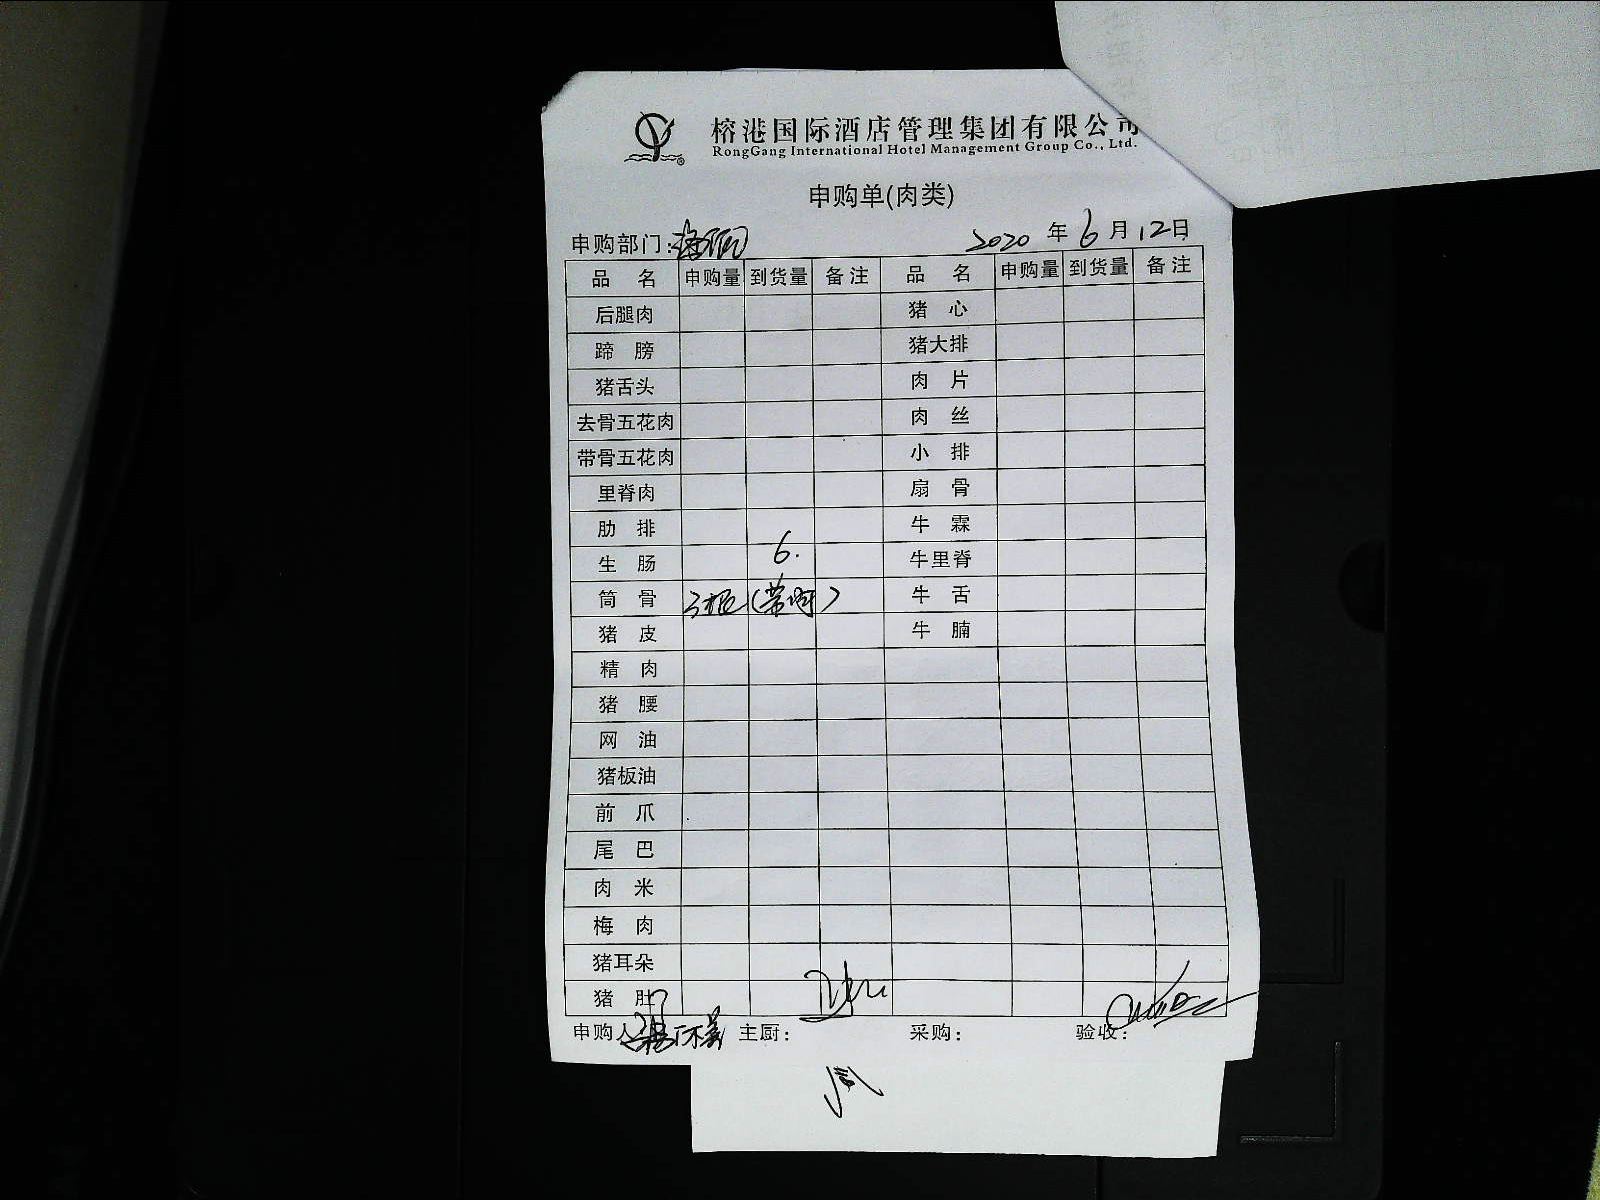 榕港国际酒店管理集团有限公司
RongGang International Hotel Management Group Co., Ltd.
申购单(肉类)
申购部门: 2020年6月12日
品名 申购量 到货量 备注 品名 申购量 到货量 备注
后腿肉 猪心
蹄膀 猪大排
猪舌头 肉片
去骨五花肉 肉丝
带骨五花肉 小排
里脊肉 扇骨
肋排 牛霖
生肠 6. 牛里脊
筒骨 3根(带肉) 牛舌
猪皮 牛腩
精肉
猪腰
网油
猪板油
前爪
尾巴
肉米
梅肉
猪耳朵
猪肚
申购人 主厨: 采购: 验收: